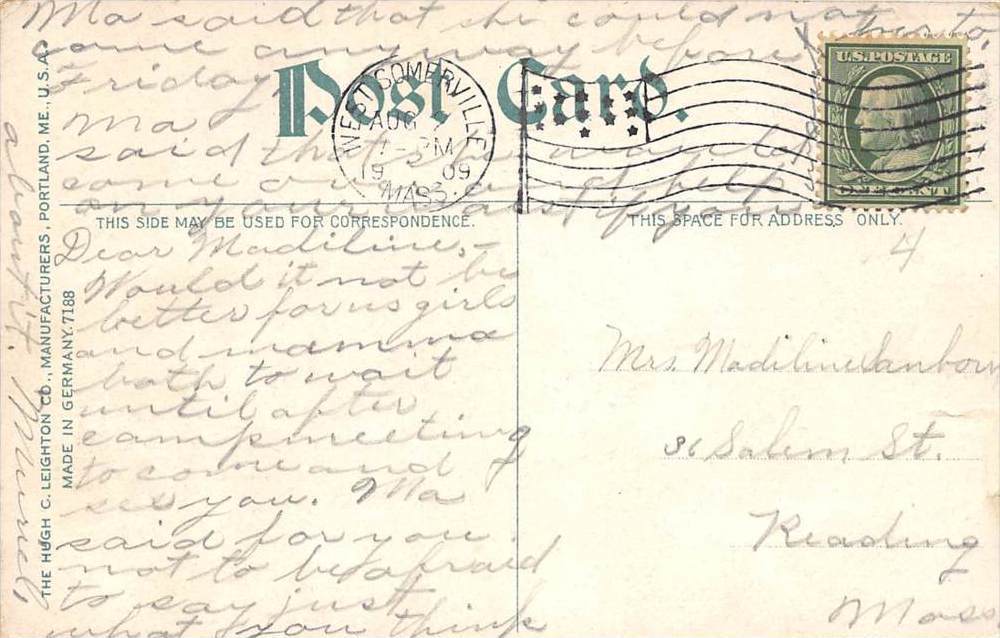 Ma said that she could not
come any way before
Friday,
Ma
said that
come over and help
on yours
Post Card.
WEST SOMERVILLE
AUG
1-PM
19 09
MASS.
U.S. POSTAGE
THIS SIDE MAY BE USED FOR CORRESPONDENCE.
THIS SPACE FOR ADDRESS ONLY.
4
Dear Madiline,-
Would it not be
better for us girls
and mamma
both to wait
until after
campmeeting
to come and
see you. Ma
said for you
not to be afraid
to say just
what you think
about it.
Mrs. Madiline Sanborn
36 Salem St.
Reading
Mass.
THE HUGH C. LEIGHTON CO., MANUFACTURERS, PORTLAND, ME., U.S.A.
MADE IN GERMANY. 7188